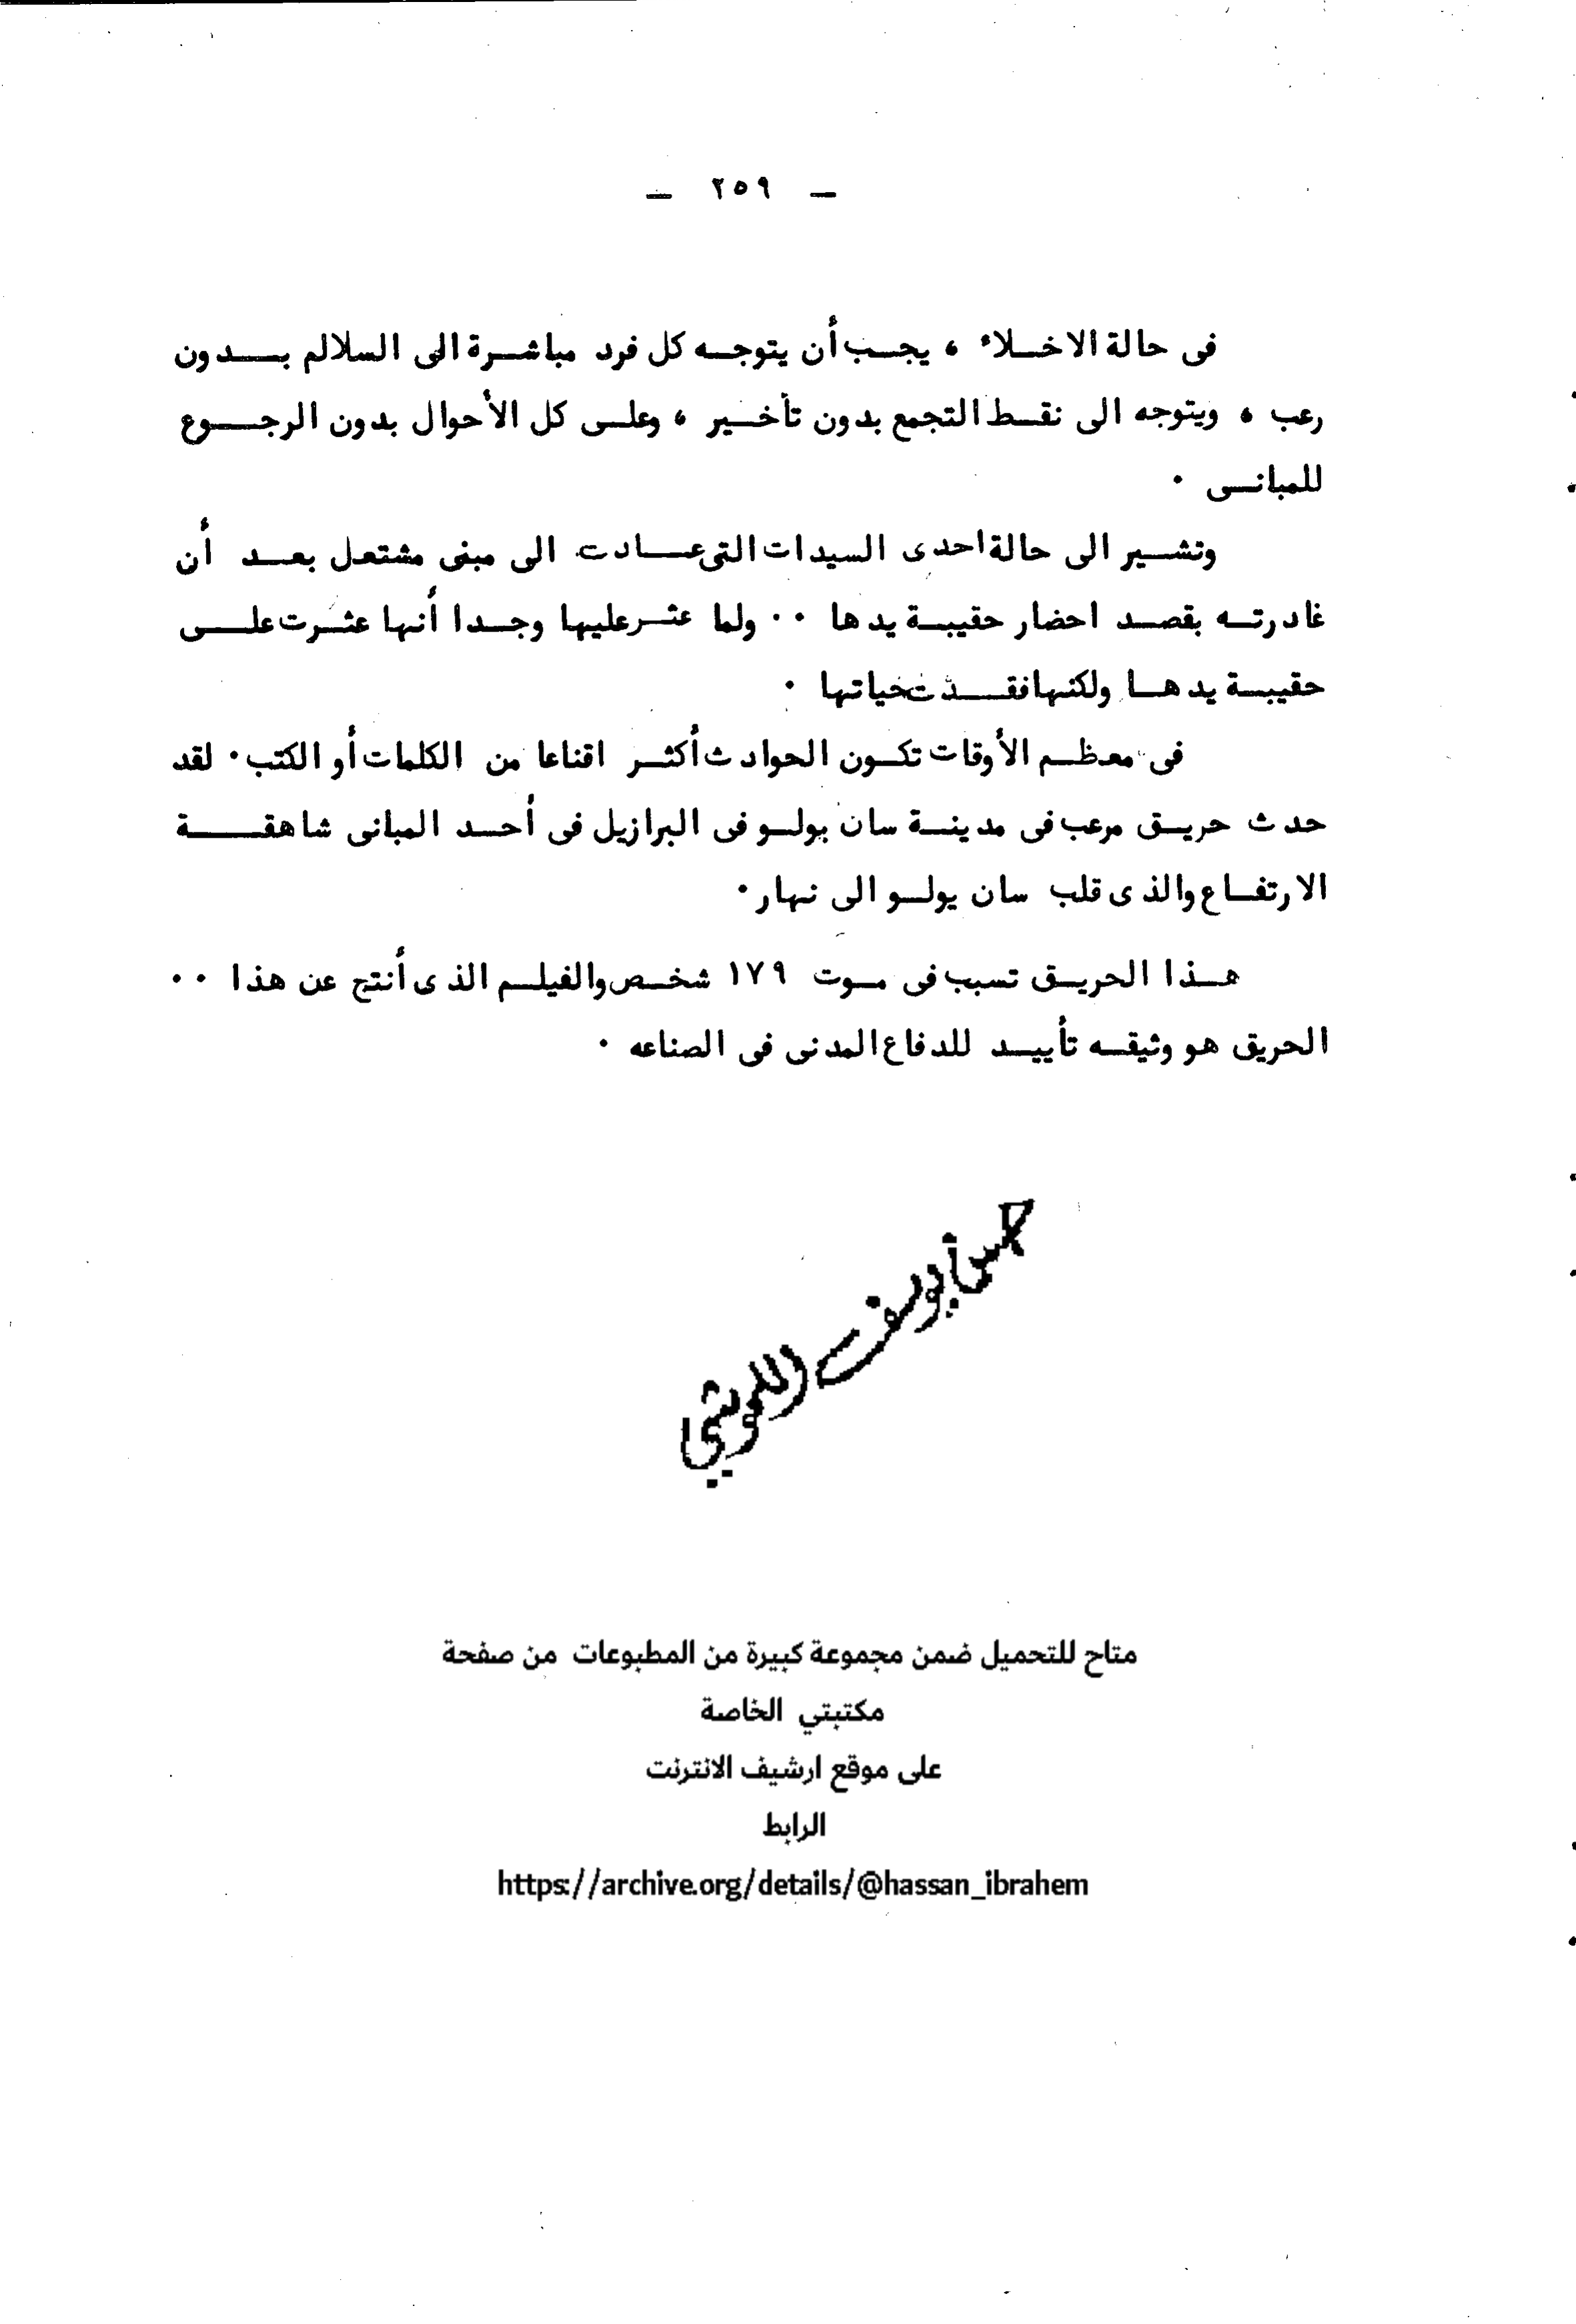 — ٢٥٩ —
فى حالة الاخلاء ، يجب أن يتوجه كل فرد مباشرة الى السلالم بدون
رعب ، ويتوجه الى نقط التجمع بدون تأخير ، وعلى كل الأحوال بدون الرجوع
للمبانى ٠
وتشير الى حالة احدى السيدات التى عادت الى مبنى مشتعل بعد أن
غادرته بقصد احضار حقيبة يدها ٠٠ ولما عثر عليها وجدا أنها عثرت على
حقيبة يدها ولكنها فقدت حياتها ٠
فى معظم الأوقات تكون الحوادث أكثر اقناعا من الكلمات أو الكتب ٠ لقد
حدث حريق مرعب فى مدينة سان بولو فى البرازيل فى أحد المبانى شاهقة
الارتفاع والذى قلب سان يولو الى نهار ٠
هذا الحريق تسبب فى موت ١٧٩ شخص والفيلم الذى أنتج عن هذا ٠٠
الحريق هو وثيقه تأييد للدفاع المدنى فى الصناعه ٠
متاح للتحميل ضمن مجموعة كبيرة من المطبوعات من صفحة
مكتبتي الخاصة
على موقع ارشيف الانترنت
الرابط
https://archive.org/details/@hassan_ibrahem